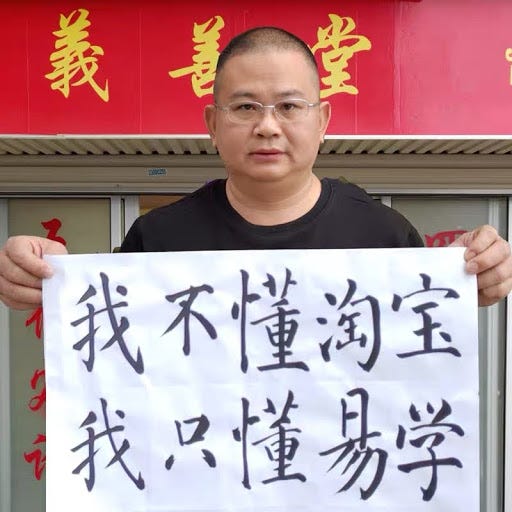 義善堂
我不懂淘宝
我只懂易学